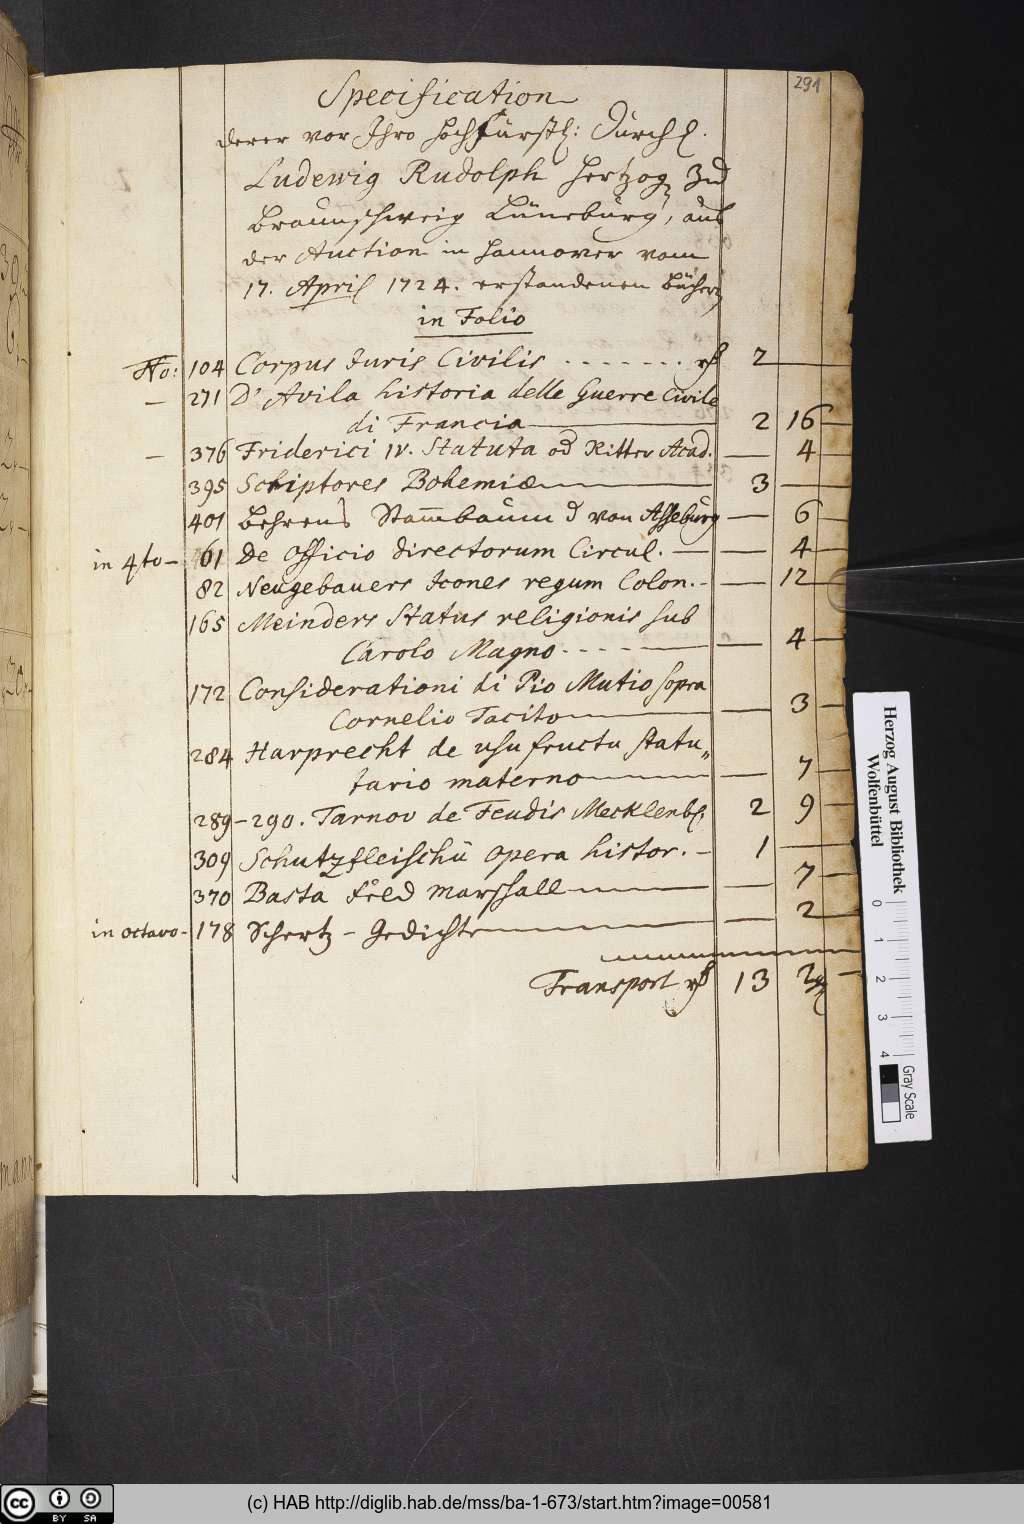 291
Specification
derer vor Ihro Hochfürstl: Durchl.
Ludewig Rudolph Hertzog zu
Braunschweig Lüneburg, aus
der Auction in Hannover vom
17. April 1724. erstandenen Bücher
in Folio
No: 104 Corpus Juris Civilis . . . . . . . . 2 —
— 271 D'Avila historia delle Guerre Civile
di Francia — 2 16 —
— 376 Friderici IV. Statuta od Ritter Acad. — 4 —
395 Scriptores Bohemiæ — 3 —
401 Behrens Stam̅baum d von Asseburg — 6 —
in 4to — 61 De Officio directorum Circul. — — 4 —
82 Neugebauers Icones regum Colon. - — 12 —
165 Meinders Status religionis sub
Carolo Magno - - - - — 4 —
172 Considerationi di Pio Mutio sopra
Cornelio Tacito — 3 —
284 Harprecht de usufructu statu„
tario materno — 7 —
289 – 290. Tarnov de Feudis Mecklenb. 2 9 —
309 Schutzfleischii opera histor. – 1 —
370 Basta Feld Marshall — 7 —
in octavo - 178 Schertz - Gedichte — 2 —
Transport 13 2
Herzog August Bibliothek
Wolfenbüttel
0 1 2 3 4
Gray Scale
cc BY SA
(c) HAB http://diglib.hab.de/mss/ba-1-673/start.htm?image=00581